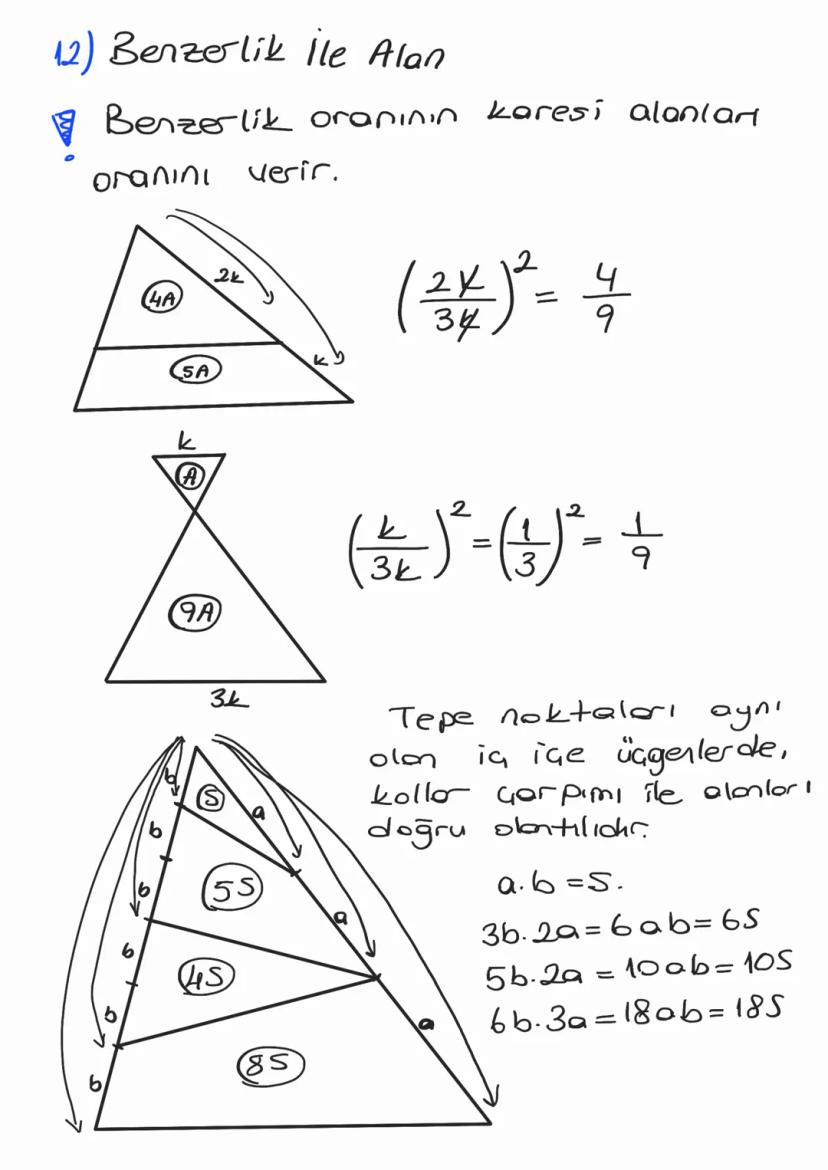 12) Benzerlik İle Alan
! Benzerlik oranının karesi alanları
oranını verir.
2k
4A
k
5A
(2k/3k)² = 4/9
k
A
9A
3k
(k/3k)² = (1/3)² = 1/9
Tepe noktaları aynı
olan iç içe üçgenlerde,
kollar çarpımı ile alanları
doğru olantılıdır.
a.b = S.
3b.2a = 6ab = 6S
5b.2a = 10ab = 10S
6b.3a = 18ab = 18S
b
S
a
b
b
5S
a
b
4S
b
a
8S
b